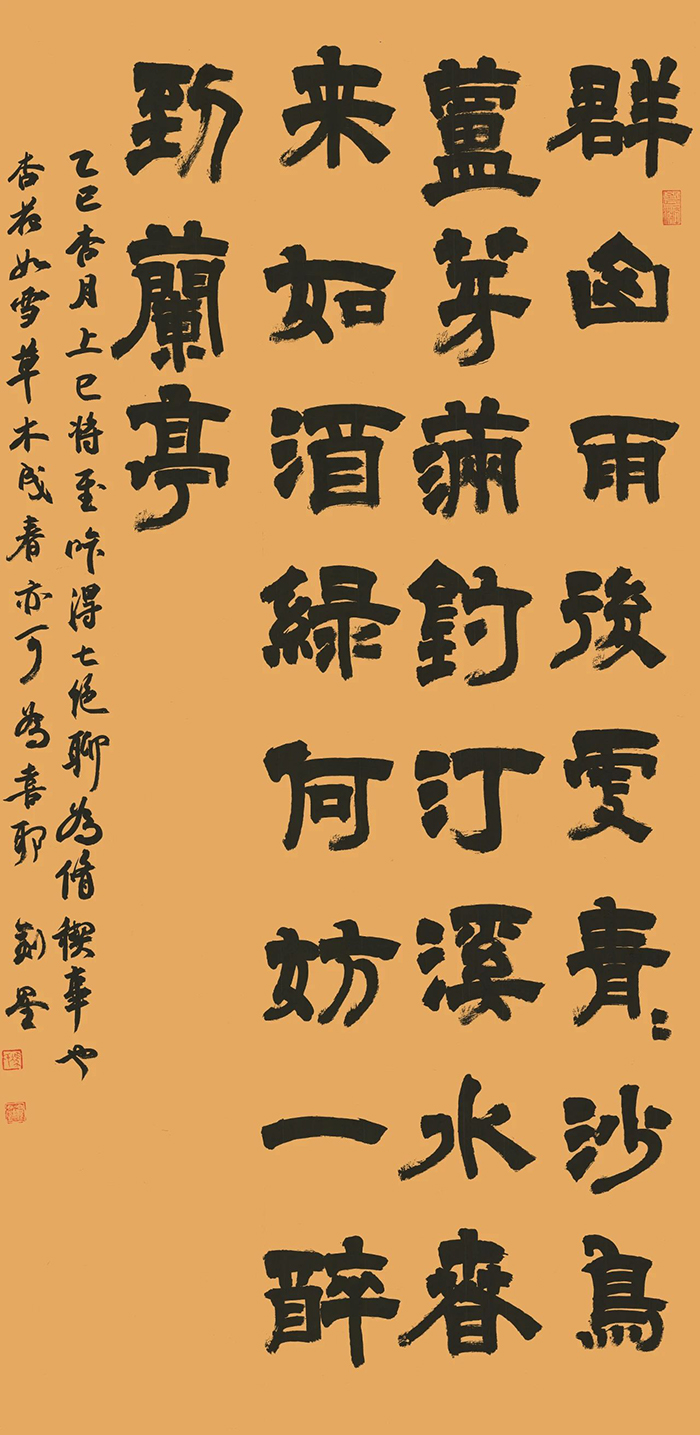 群山雨後更青〻沙鳥
蘆芽滿釣汀溪水春
来如酒綠何妨一醉
到蘭亭
乙巳杏月上巳将至昨得七绝聊為脩禊事也
杏花如雪草木成春亦可為喜耶 劉墨